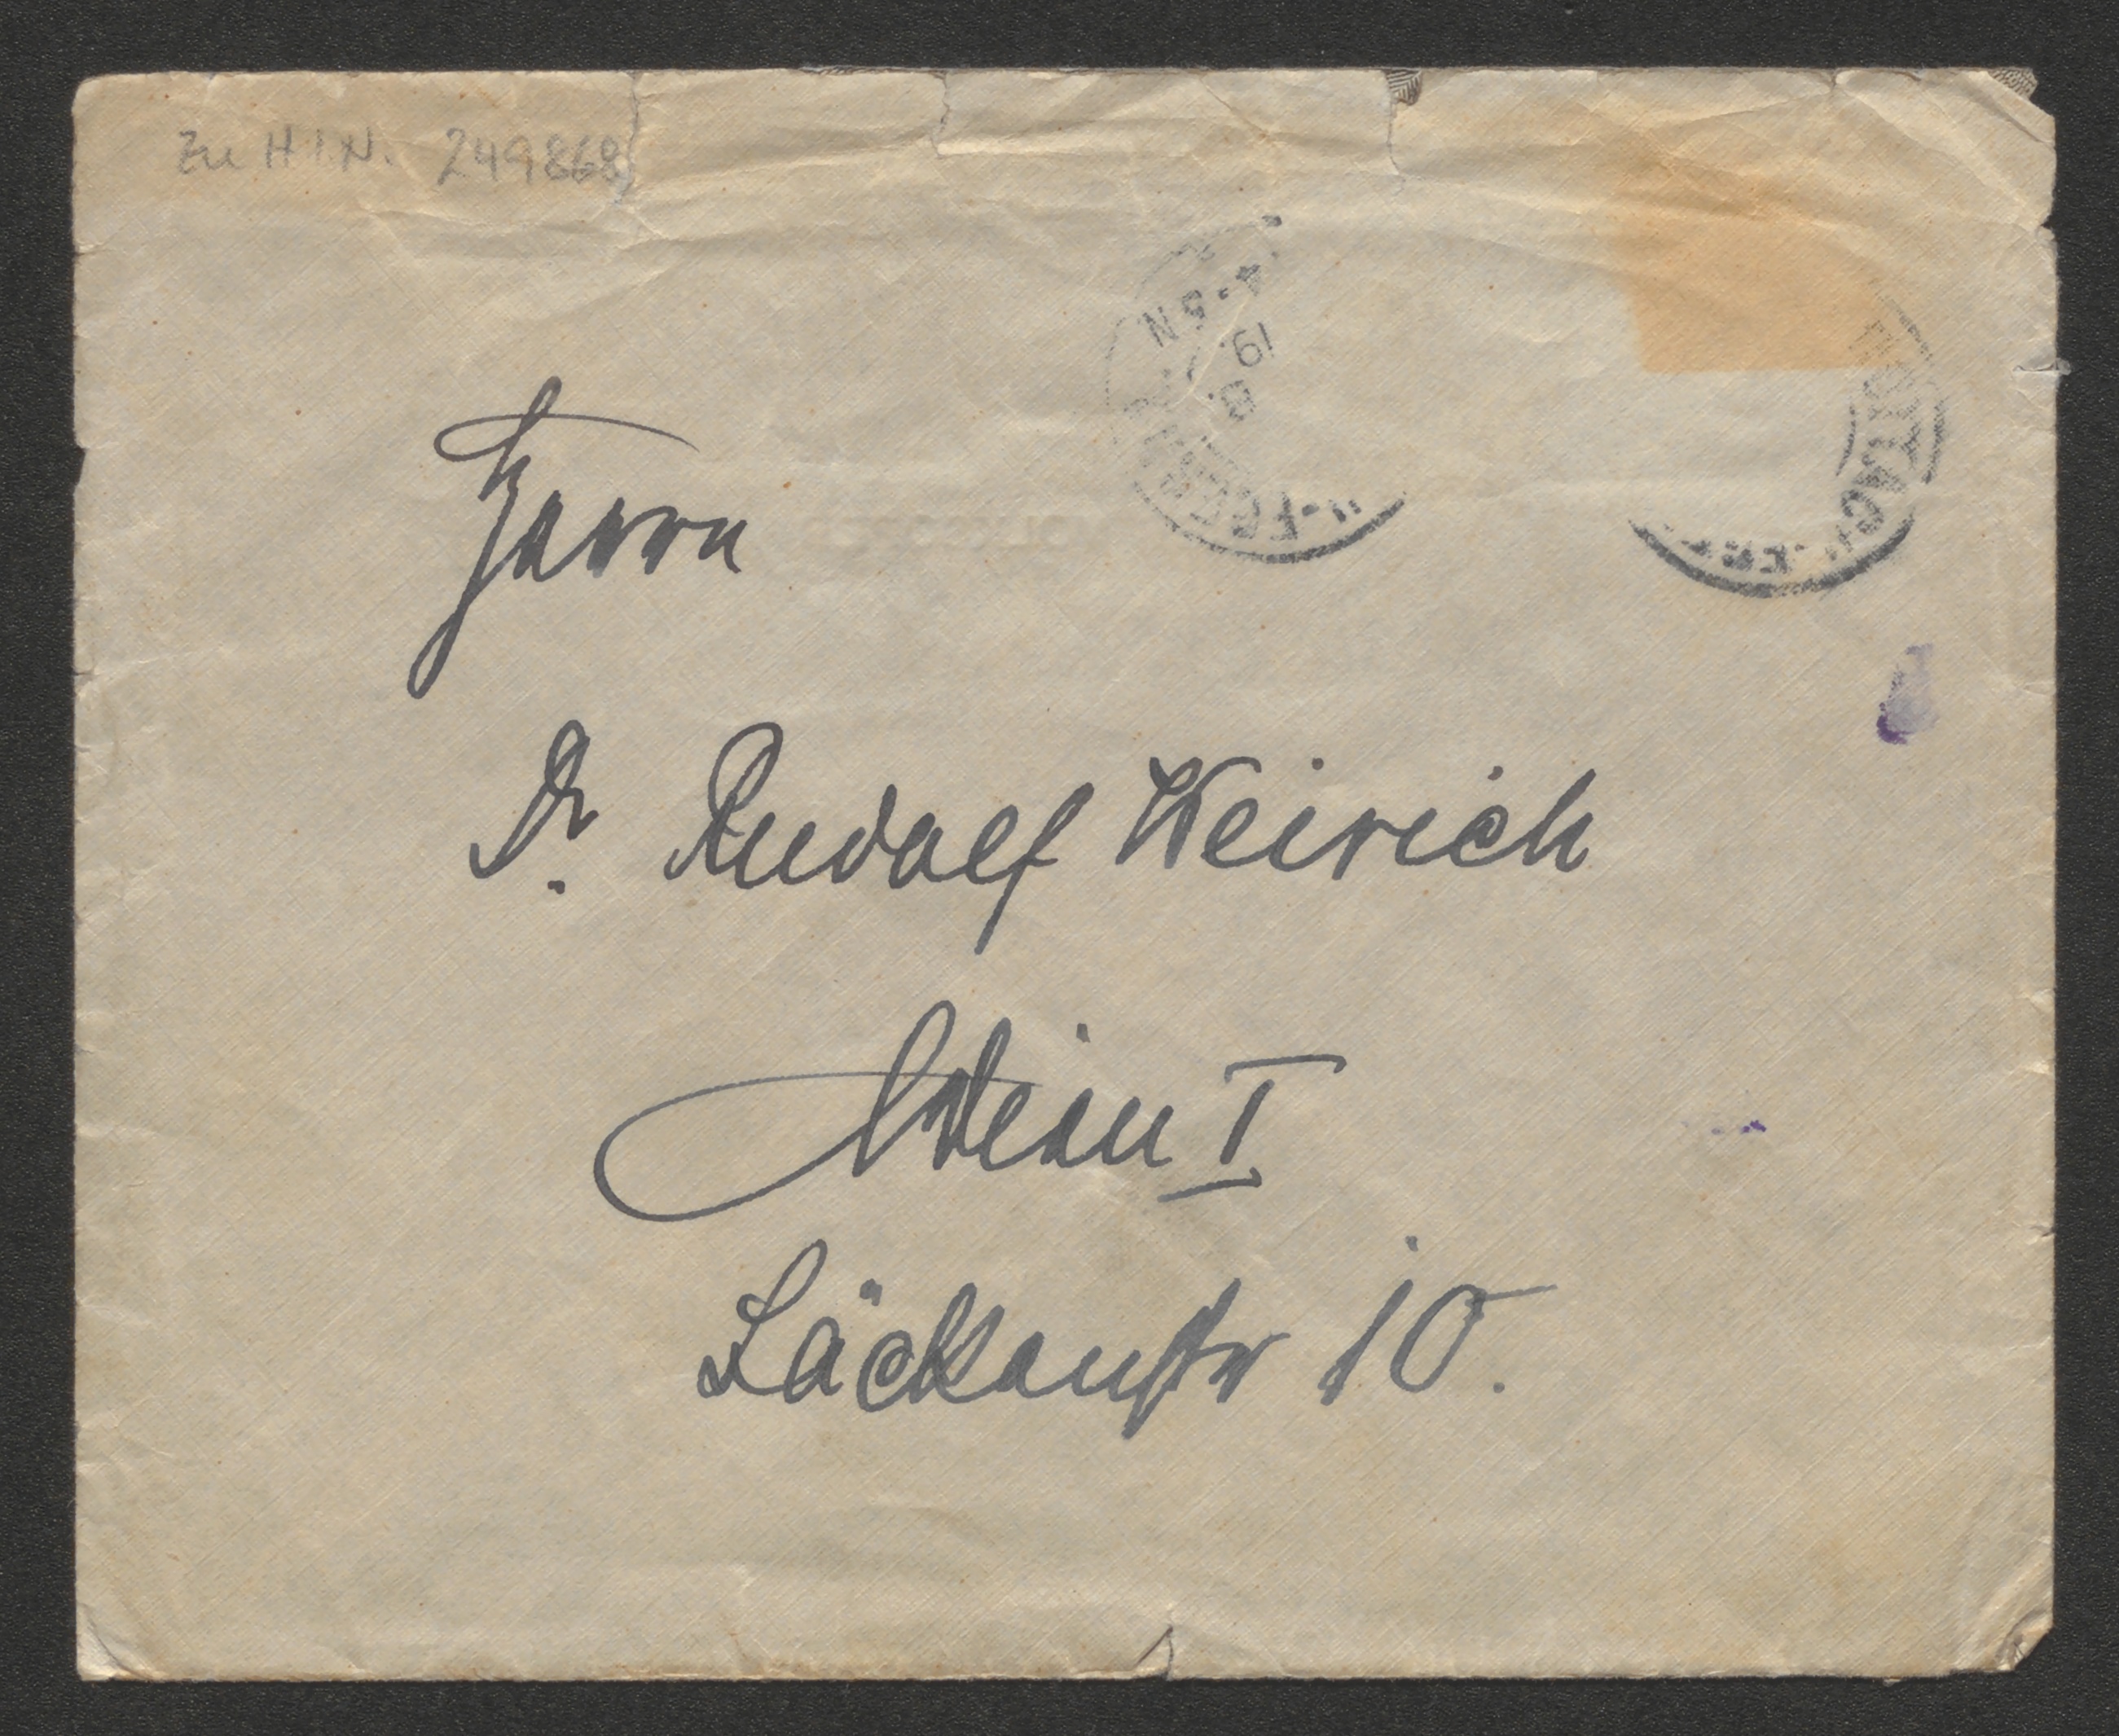 Zu H.I.N. 249868
4-5N
19.
Herrn
Dr. Rudolf Weirich
Wien I
Bäckerstr 10.